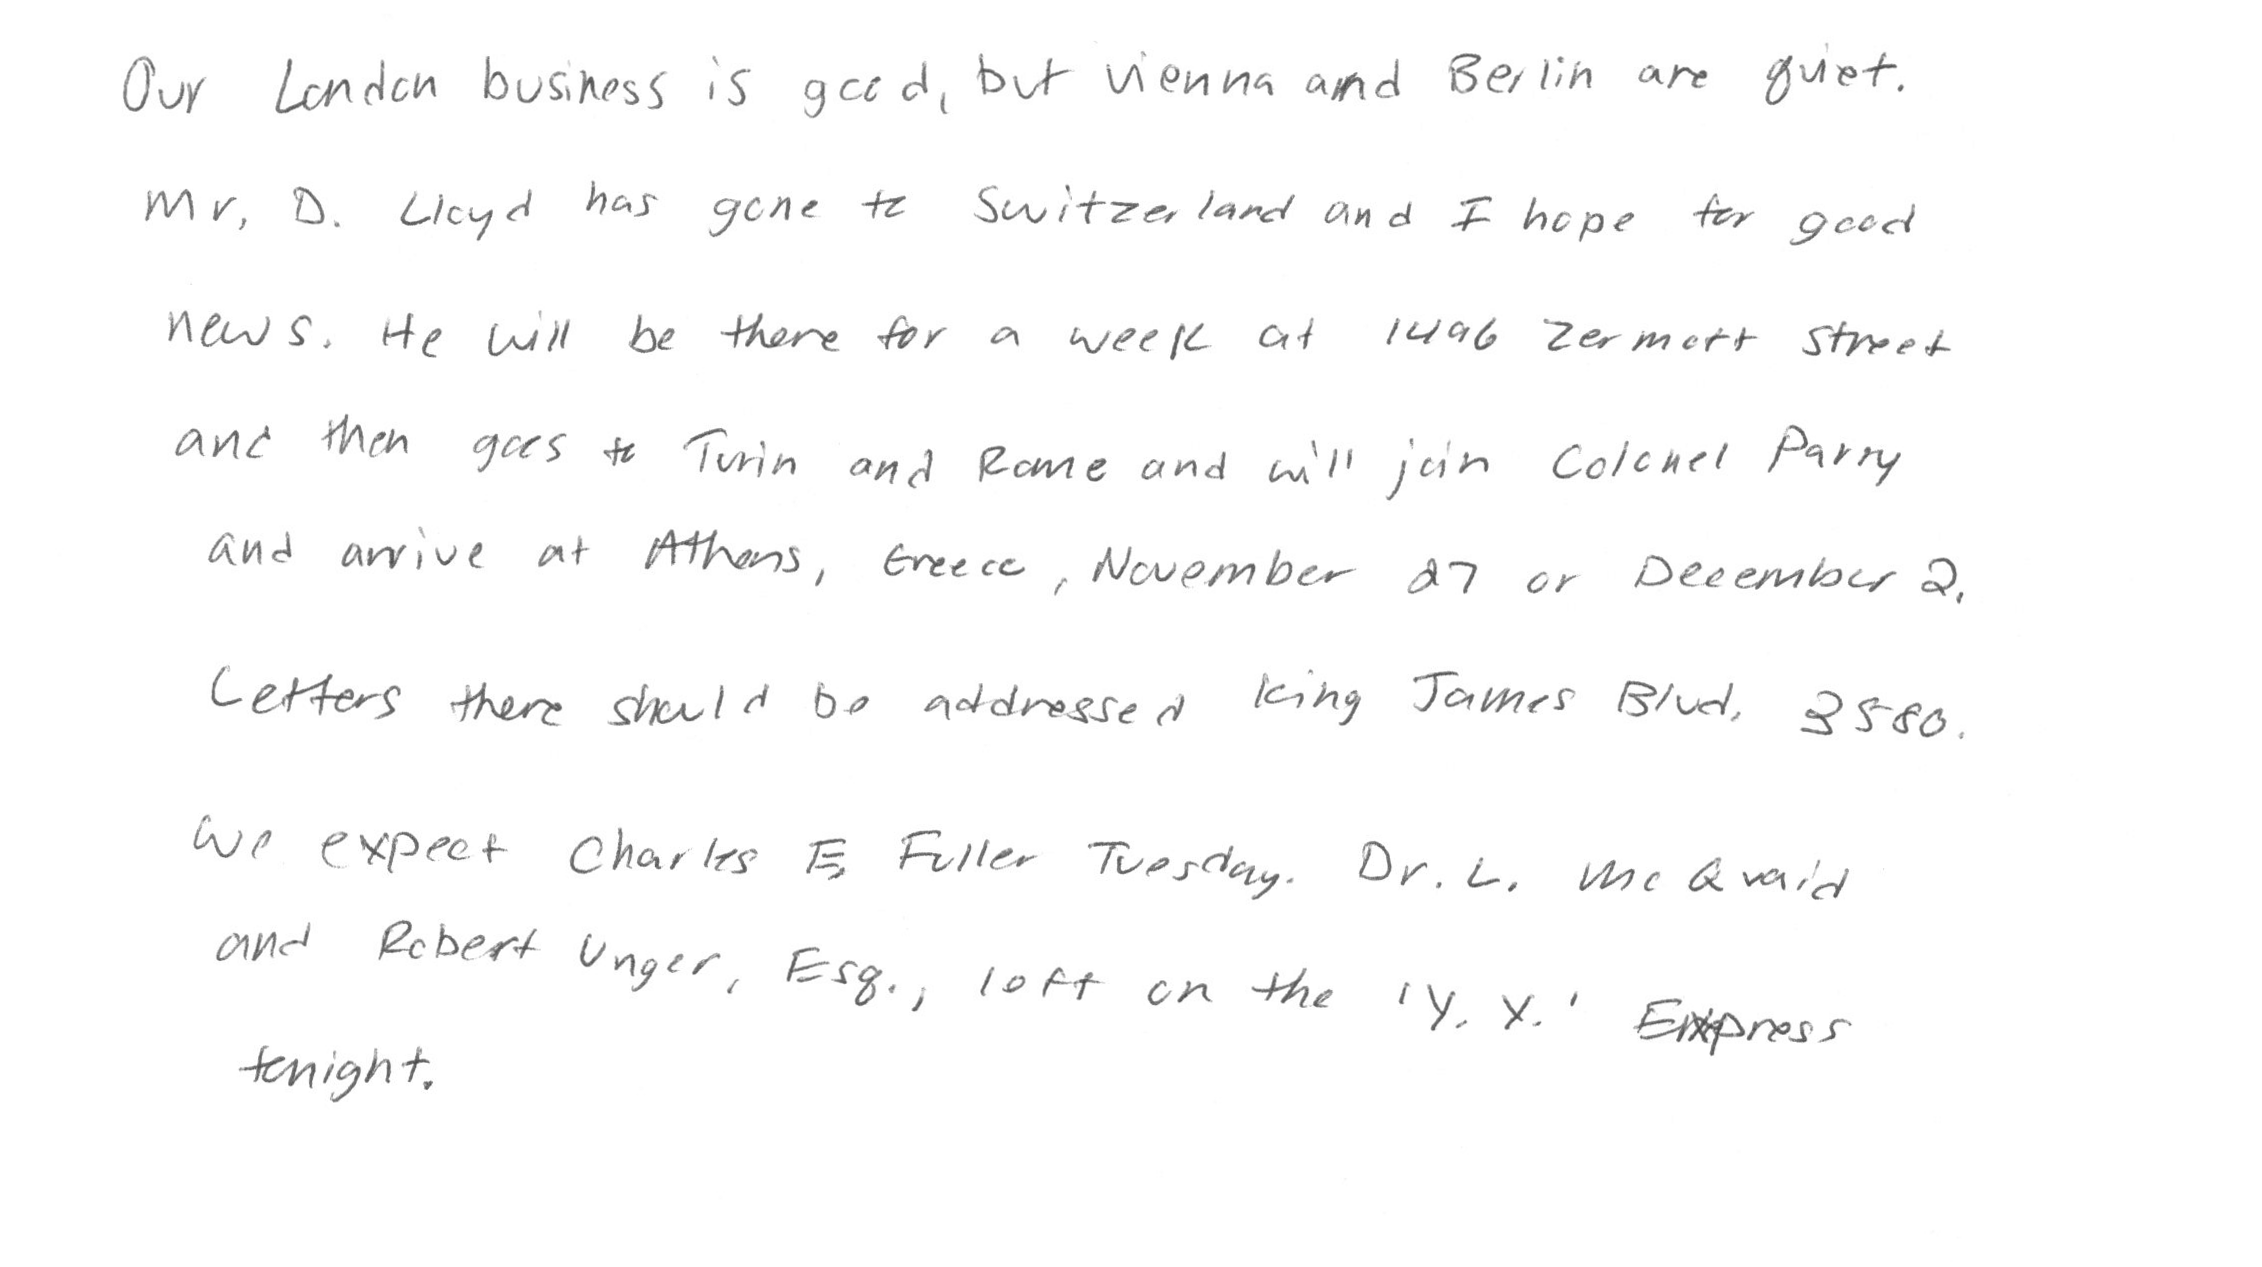 Our London business is good, but Vienna and Berlin are quiet.
Mr. D. Lloyd has gone to Switzerland and I hope for good
news. He will be there for a week at 1496 Zermott Street
and then goes to Turin and Rome and will join Colonel Parry
and arrive at Athens, Greece, November 27 or December 2.
Letters there should be addressed King James Blvd. 3580.
We expect Charles E. Fuller Tuesday. Dr. L. McQuaid
and Robert Unger, Esq., left on the 'Y. X.' Express
tonight.